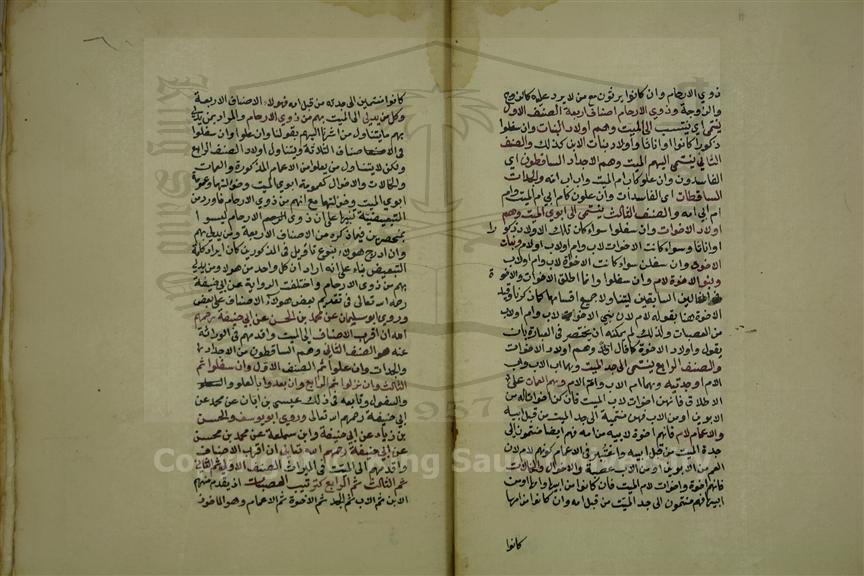 ذوي الارحام وان كانوا يرثون مع من لا يرد عليه كالزوج
والزوجة وذوي الارحام اصناف اربعة الصنف الاول
ينتمي اي ينتسب الى الميت وهم اولاد البنات وان سفلوا
ذكورا كانوا او اناثا واولاد بنات الابن كذلك والصنف
الثاني ينتمي اليهم الميت وهم الاجداد الساقطون اي
الفاسدون وان علوا كاب ام الميت واب اب امه والجدات
الساقطات اي الفاسدات وان علون كام اب ام الميت وام
ام ابي امه والصنف الثالث ينتمي الى ابوي الميت وهم
اولاد الاخوات وان سفلوا سواء كان تلك الاولاد ذكورا
او اناثا وسواء كانت الاخوات لاب وام او لاب او لام وبنات
الاخوة وان سفلن سواء كانت الاخوة لاب وام او لاب
وبنو الاخوة لام وان سفلوا وانما اطلق الاخوات والاخوة
السابقين ليتناولا جميع اقسامها كما ذكرنا وقيد
الاخوة هنا بقوله لام لان بني الاخوة لاب وام او لاب
من العصبات ولذلك لم يمكنه ان يختصر في العبارة بان
يقول واولاد الاخوة كما قال وهم اولاد الاخوات
والصنف الرابع ينتمي الى جدي الميت وهما اب الاب واب
الام او جدتيه وهما ام الاب وام الام وهم العمات على
الاطلاق فانهن اخوات لاب الميت فان كن اخواته من
الابوين او من الاب فهن منتمية الى جد الميت من قبل ابيه
والاعمام لام فانهم اخوة لابيه من امه فهم ايضا منتمون الى
جدة الميت من قبل ابيه واعتبر في الاعمام كونهم لام لان
العم من الابوين او من الاب عصبة والاخوال والخالات
فانهم اخوة واخوات لام الميت فان كانوا من ابيها وامها او من
ابيها فهم منتمون الى جد الميت من قبل امه وان كانوا من امها
كانوا
كانوا منتمين الى جدته من قبل امه فهولاء الاصناف الاربعة
وكل من يدلي الى الميت بهم من ذوي الارحام والمراد بمن يدلي
بهم ما يتناول من اشرنا اليهم بقولنا وان علوا وان سفلوا
في الاصناف الثلاثة ويتناول اولاد الصنف الرابع
ولكن لا يتناول من يعلو من الاعمام المذكورة والعمات
والخالات والاخوال كعمومة ابوي الميت وخؤلتهما وعمومة
ابوي الميت وخؤلتها مع انهم من ذوي الارحام فاورد من
التبعيضية تنبيها على ان ذوي الرحم الارحام ليسوا
بمنحصرين فيما ذكره من الاصناف الاربعة ومن يدلي بهم
وان ادرج هولاء بنوع تاويل في المذكورين كان ايراد كلمة
التبعيض بناء على انه اراد ان كل واحد من هولاء ومن يدلي
بهم من ذوي الارحام واختلفت الرواية عن ابي حنيفة
رحمه الله تعالى في تقديم بعض هولاء الاصناف على بعض
وروى ابو سليمان عن محمد بن الحسن عن ابي حنيفة رحمهم
الله ان اقرب الاصناف الى الميت واقدمهم في الوراثة
عنه هو الصنف الثاني وهم الساقطون من الاجداد
والجدات وان علوا ثم الصنف الاول وان سفلوا ثم
الثالث وان نزلوا ثم الرابع وان بعدوا بالعلو
والسفول وتابعه في ذلك عيسى بن ابان عن محمد عن
ابي حنيفة رحمهم الله تعالى وروى ابو يوسف والحسن
بن زياد عن ابي حنيفة وابن سماعة عن محمد بن محسن
عن ابي حنيفة رحمهم الله تعالى ان اقرب الاصناف
واقدمهم الى الميت في الميراث الصنف الاول ثم الثاني
ثم الثالث ثم الرابع كترتيب العصبات اذ يقدم منهم
الابن ثم الاب ثم الجد ثم الاخوة ثم الاعمام وهو الماخوذ
1957